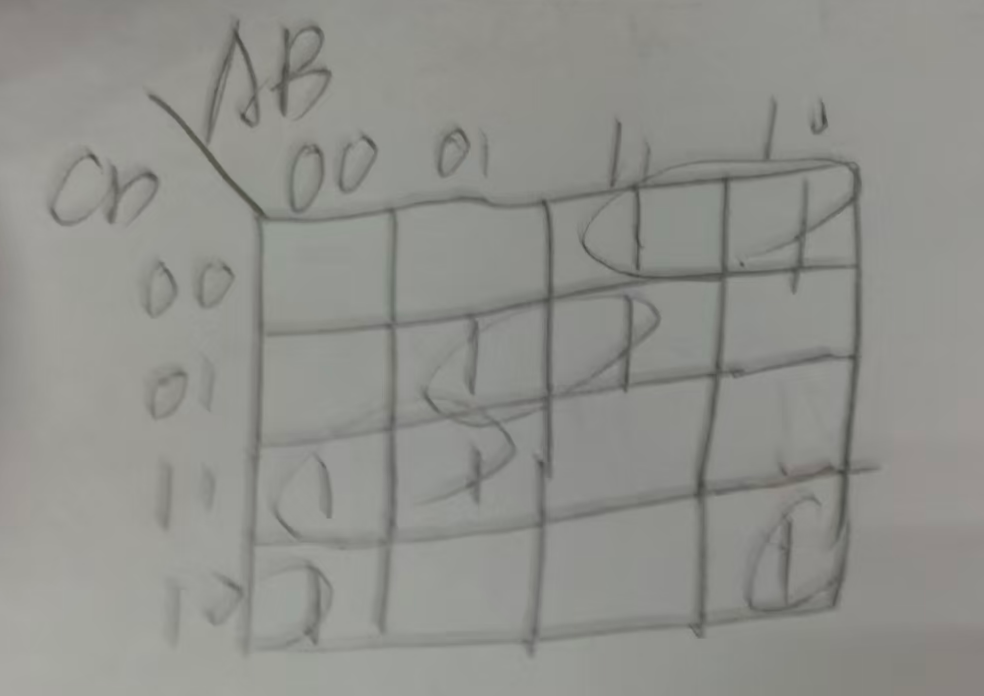 AB
CD 00 01 11 10
00 1 1
01 1 1
11 1 1
10 1 1